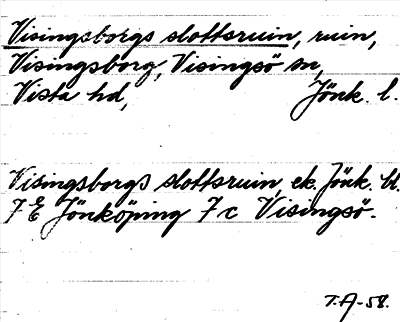 Visingsborgs slottsruin, ruin,
Visingsborg, Visingsö sn,
Vista hd, Jönk. l.
Visingsborgs slottsruin, ek. Jönk. bl.
7 E Jönköping 7 c Visingsö.
T.A-58.